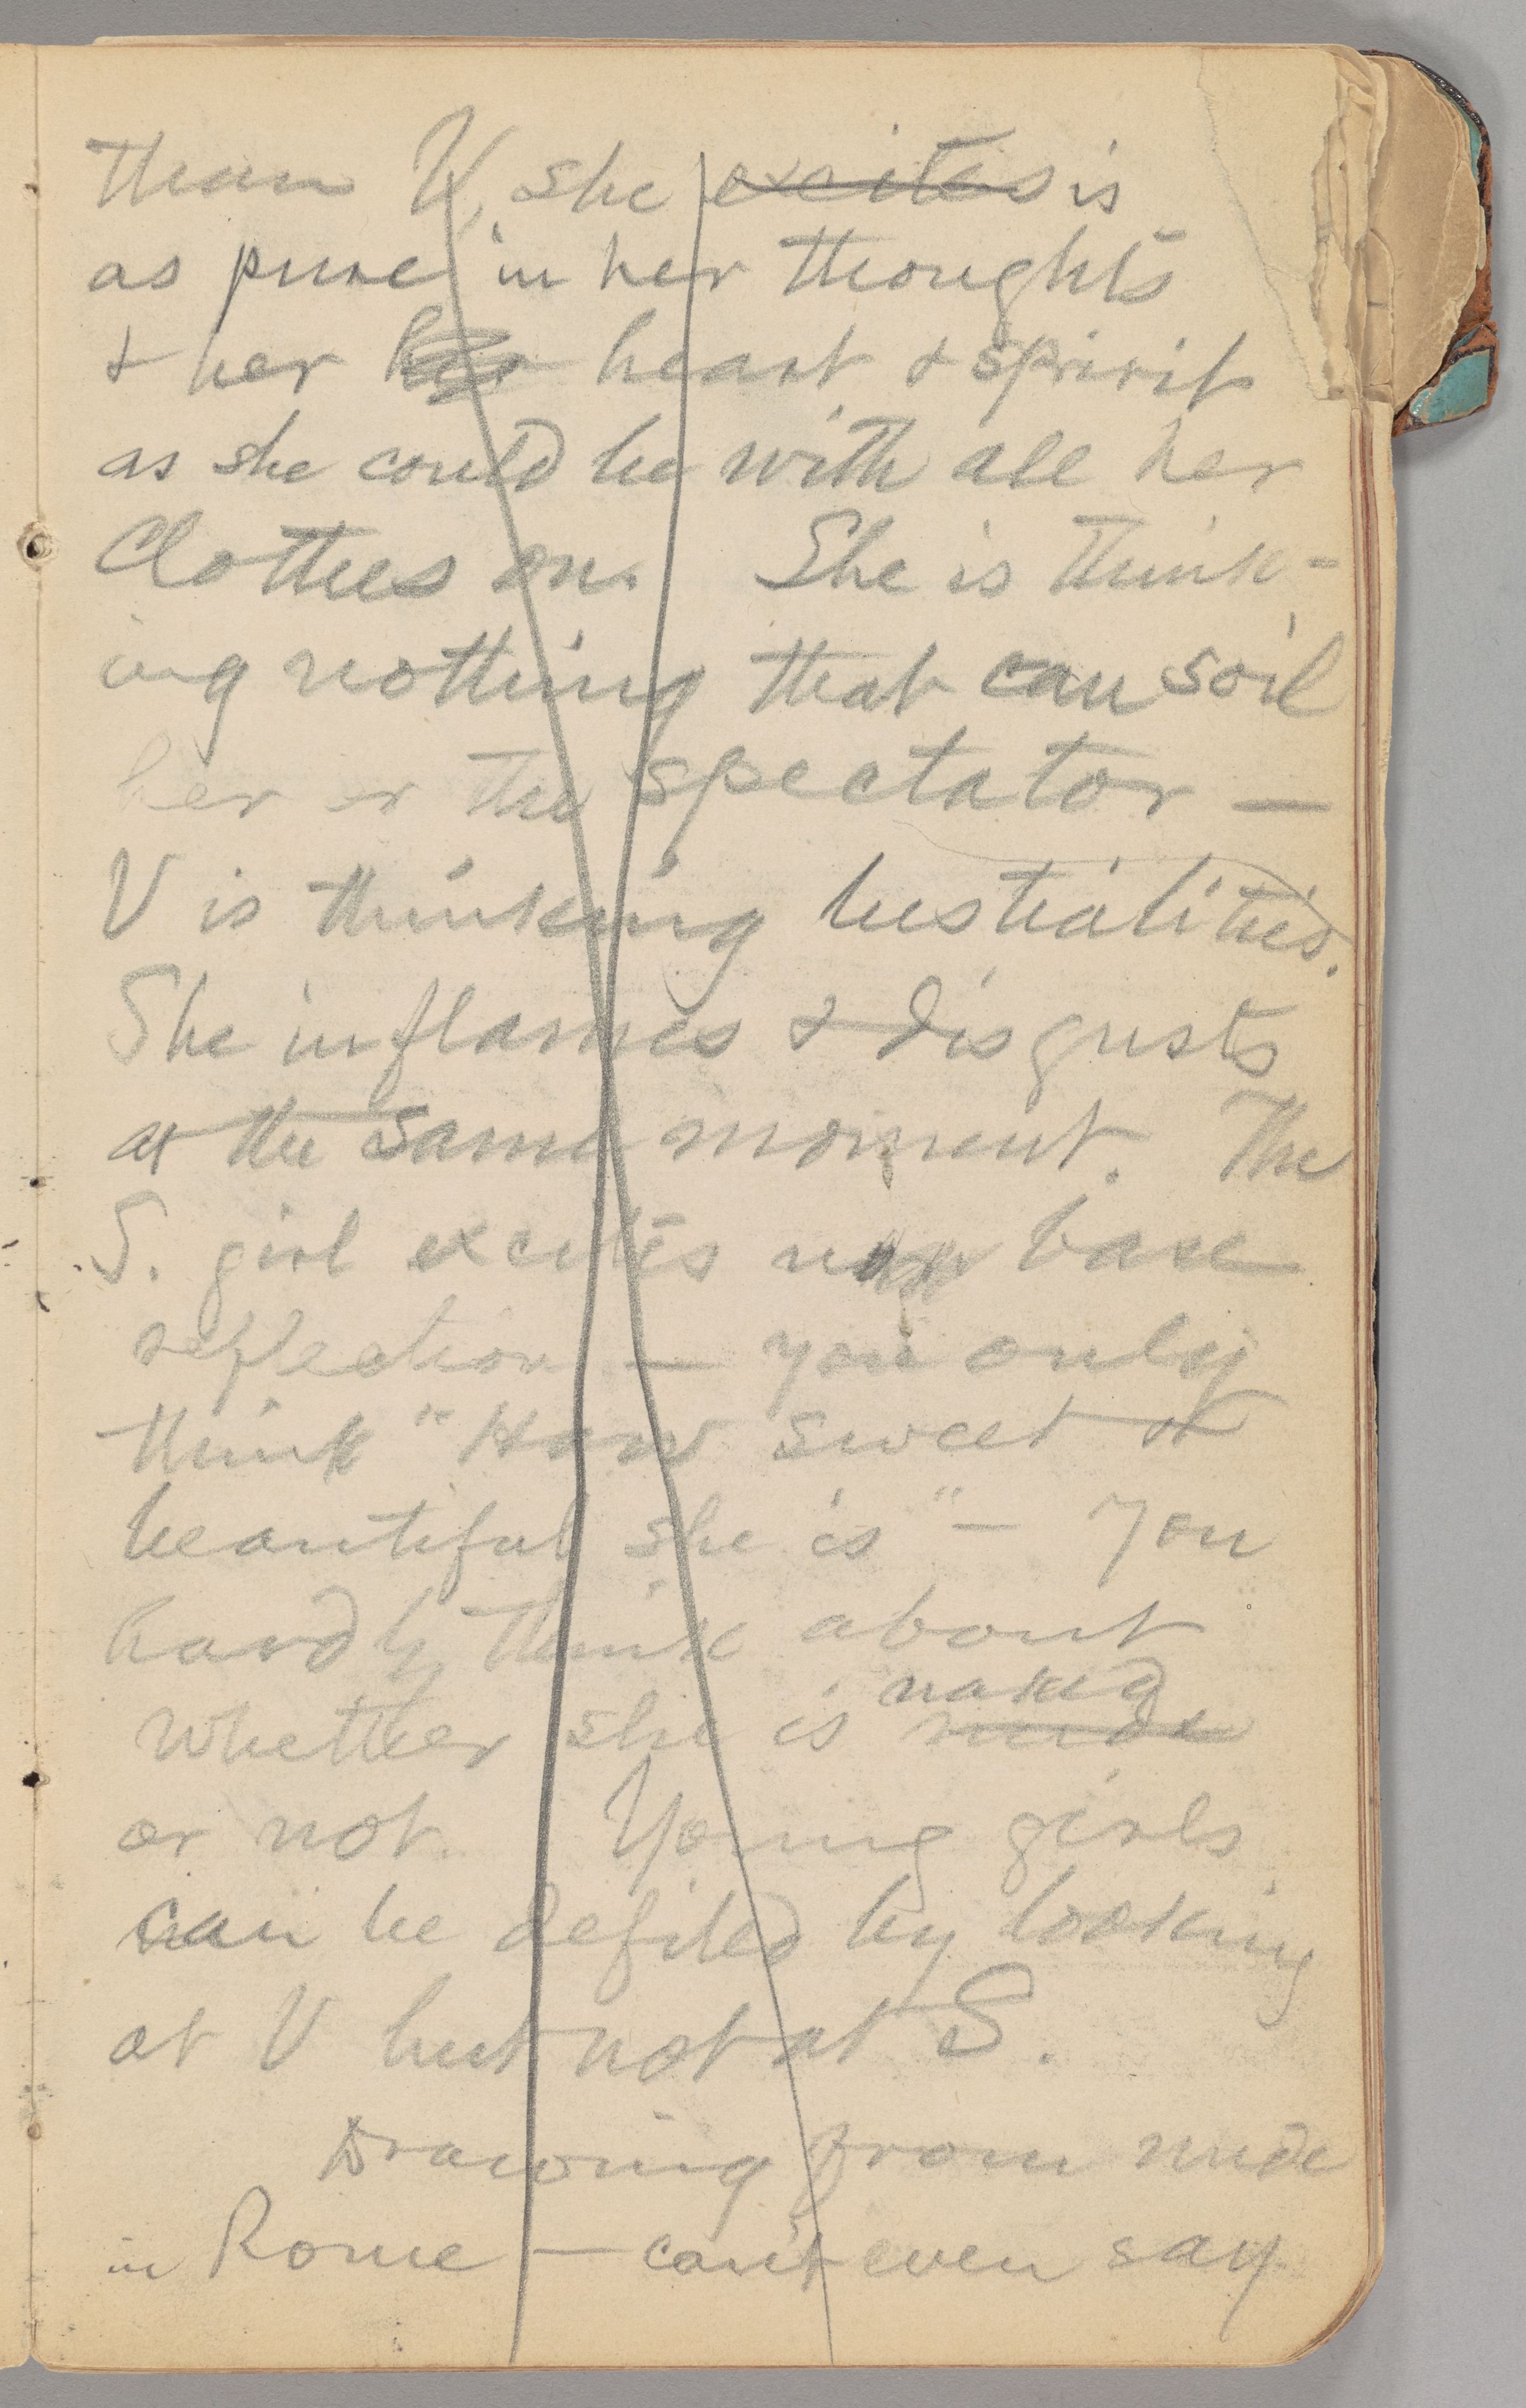 than V, she excites is
as pure in her thoughts
& her her heart & spririt
as she could be with all her
Clothes on. She is think-
ing nothing that can soil
her or the spectator —
V is thinking bestialities.
She inflames & disgusts
at the same moment. The
S. girl excites no base
reflection — you only
think "How sweet &
beautiful she is" — You
hardly think about
naked
whether she is nude
or not. Young girls
can be defiled by looking
at V but not at S.
Drawing from nude
in Rome — can't even say